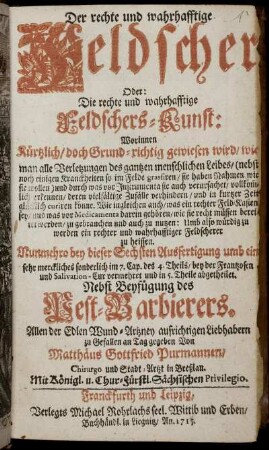 Der rechte und wahrhafftige
Feldscher
Oder:
Die rechte und wahrhafftige
Feldschers-Kunst:
Worinnen
Kürtzlich/ doch Grund-richtig gewiesen wird/ wie
man alle Verletzungen des gantzen menschlichen Leibes/ (nebst
noch einigen Kranckheiten so im Felde grassiren/ sie haben Nahmen wie
sie wollen/ und durch was vor Instrumenta sie auch verursachet/ vollkömm-
lich erkennen/ deren vielfältige Zufälle verhindern/ und in kurtzer Zeit
glücklich curiren könne. Wie ingleichen auch/ was ein rechter Feld-Kasten
sey/ und was vor Medicamenta darein gehören/ wie sie recht müssen berei-
tet werden/ zu gebrauchen und auch zu nutzen: Und also würdig zu
werden ein rechter und wahrhafftiger Feldscherer
zu heissen.
Nunmehro bey dieser Sechsten Ausfertigung umb ein
sehr merckliches sonderlich im 7. Cap. des 4. Theils/ bey der Frantzosen
und Salivation-Cur vermehret und in 5. Theile abgetheilet.
Nebst Beyfügung des
Pest-Barbierers.
Allen der Edlen Wund-Artzney aufrichtigen Liebhabern
zu Gefallen an Tag gegeben Von
Matthäus Gottfried Purmannen/
Chirurgo und Stadt-Artzt in Breßlau.
Mit Königl. u. Chur-Fürstl. Sächsischen Privilegio.
Franckfurth und Leipzig/
Verlegts Michael Rohrlachs seel. Wittib und Erben/
Buchhändl. in Liegnitz/ An. 1715.